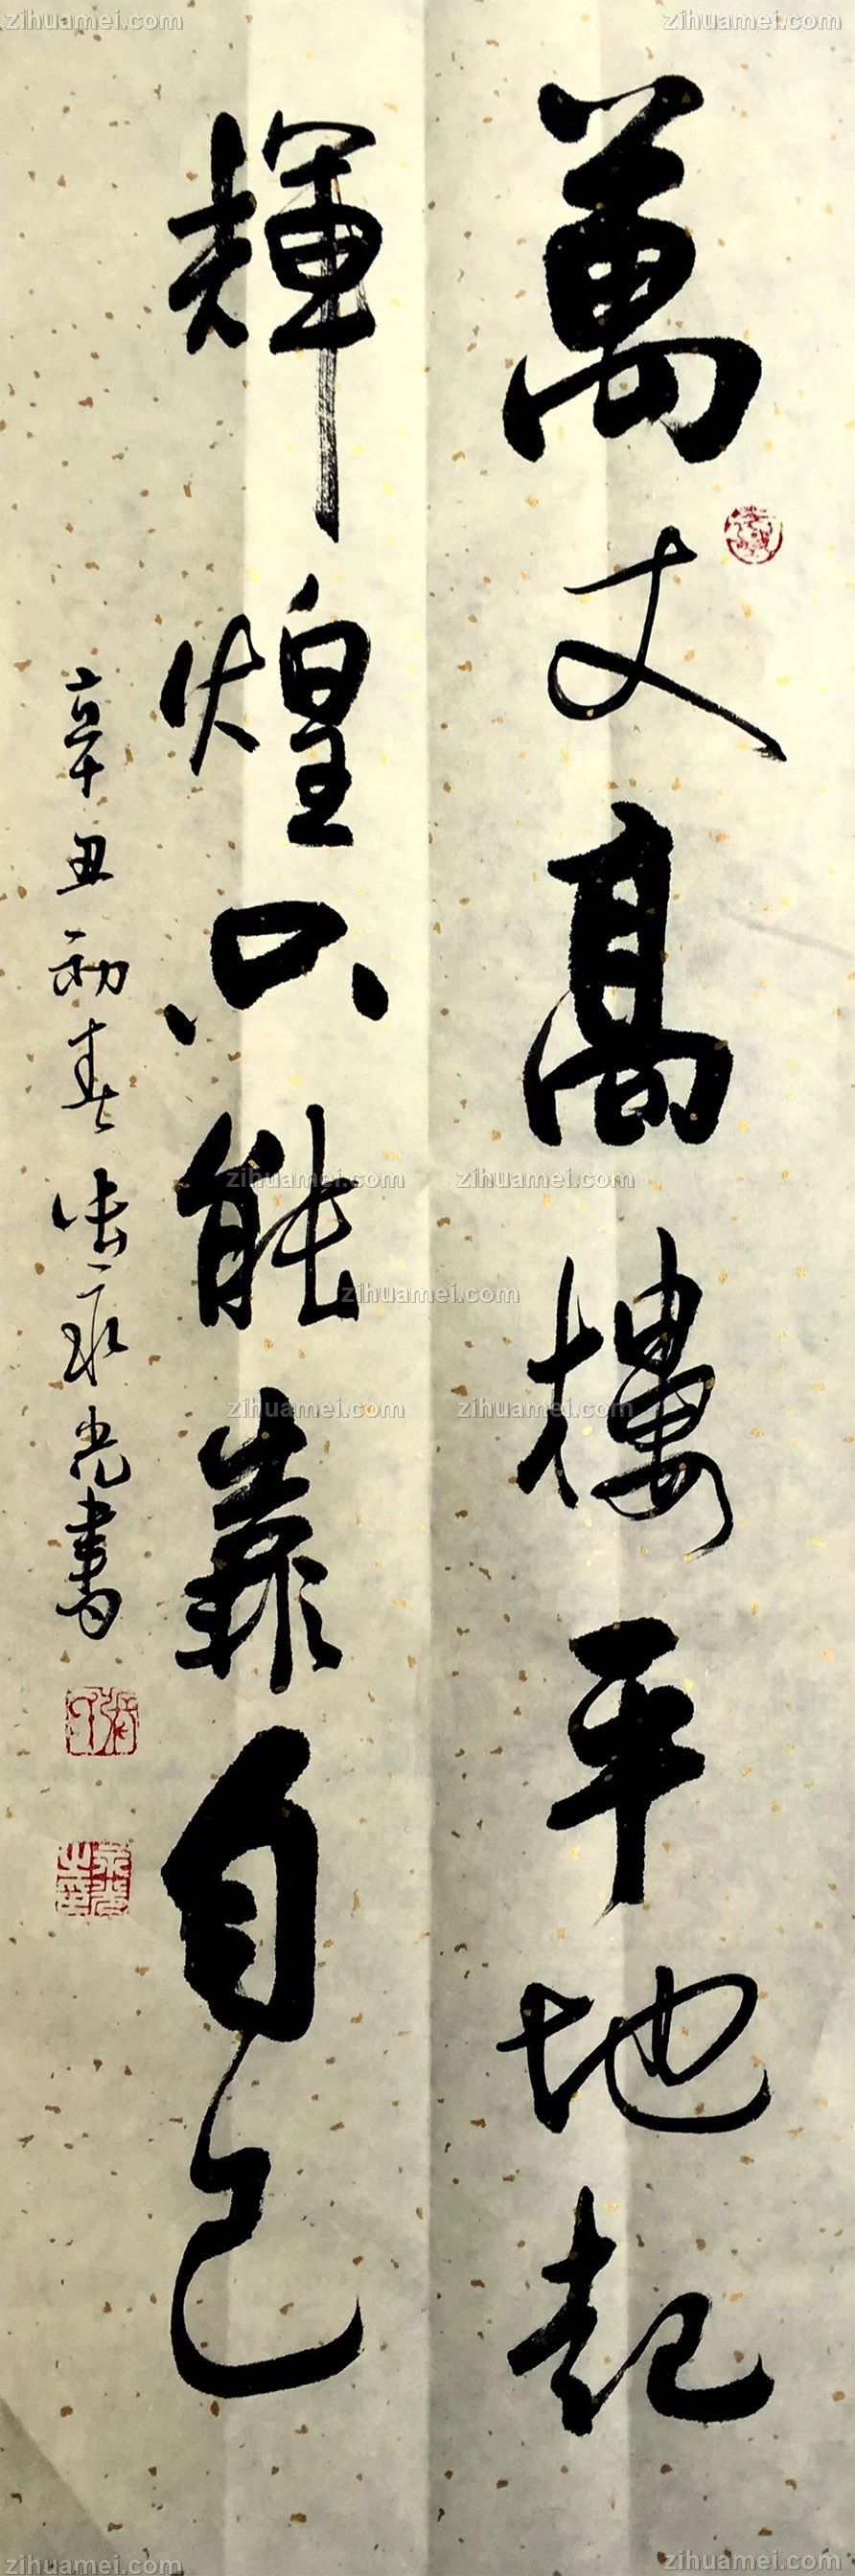 萬丈高樓平地起
輝煌只能靠自己
辛丑初春张永光書
zihuamei.com
zihuamei.com
zihuamei.com
zihuamei.com
zihuamei.com
zihuamei.com
zihuamei.com
zihuamei.com
zihuamei.com